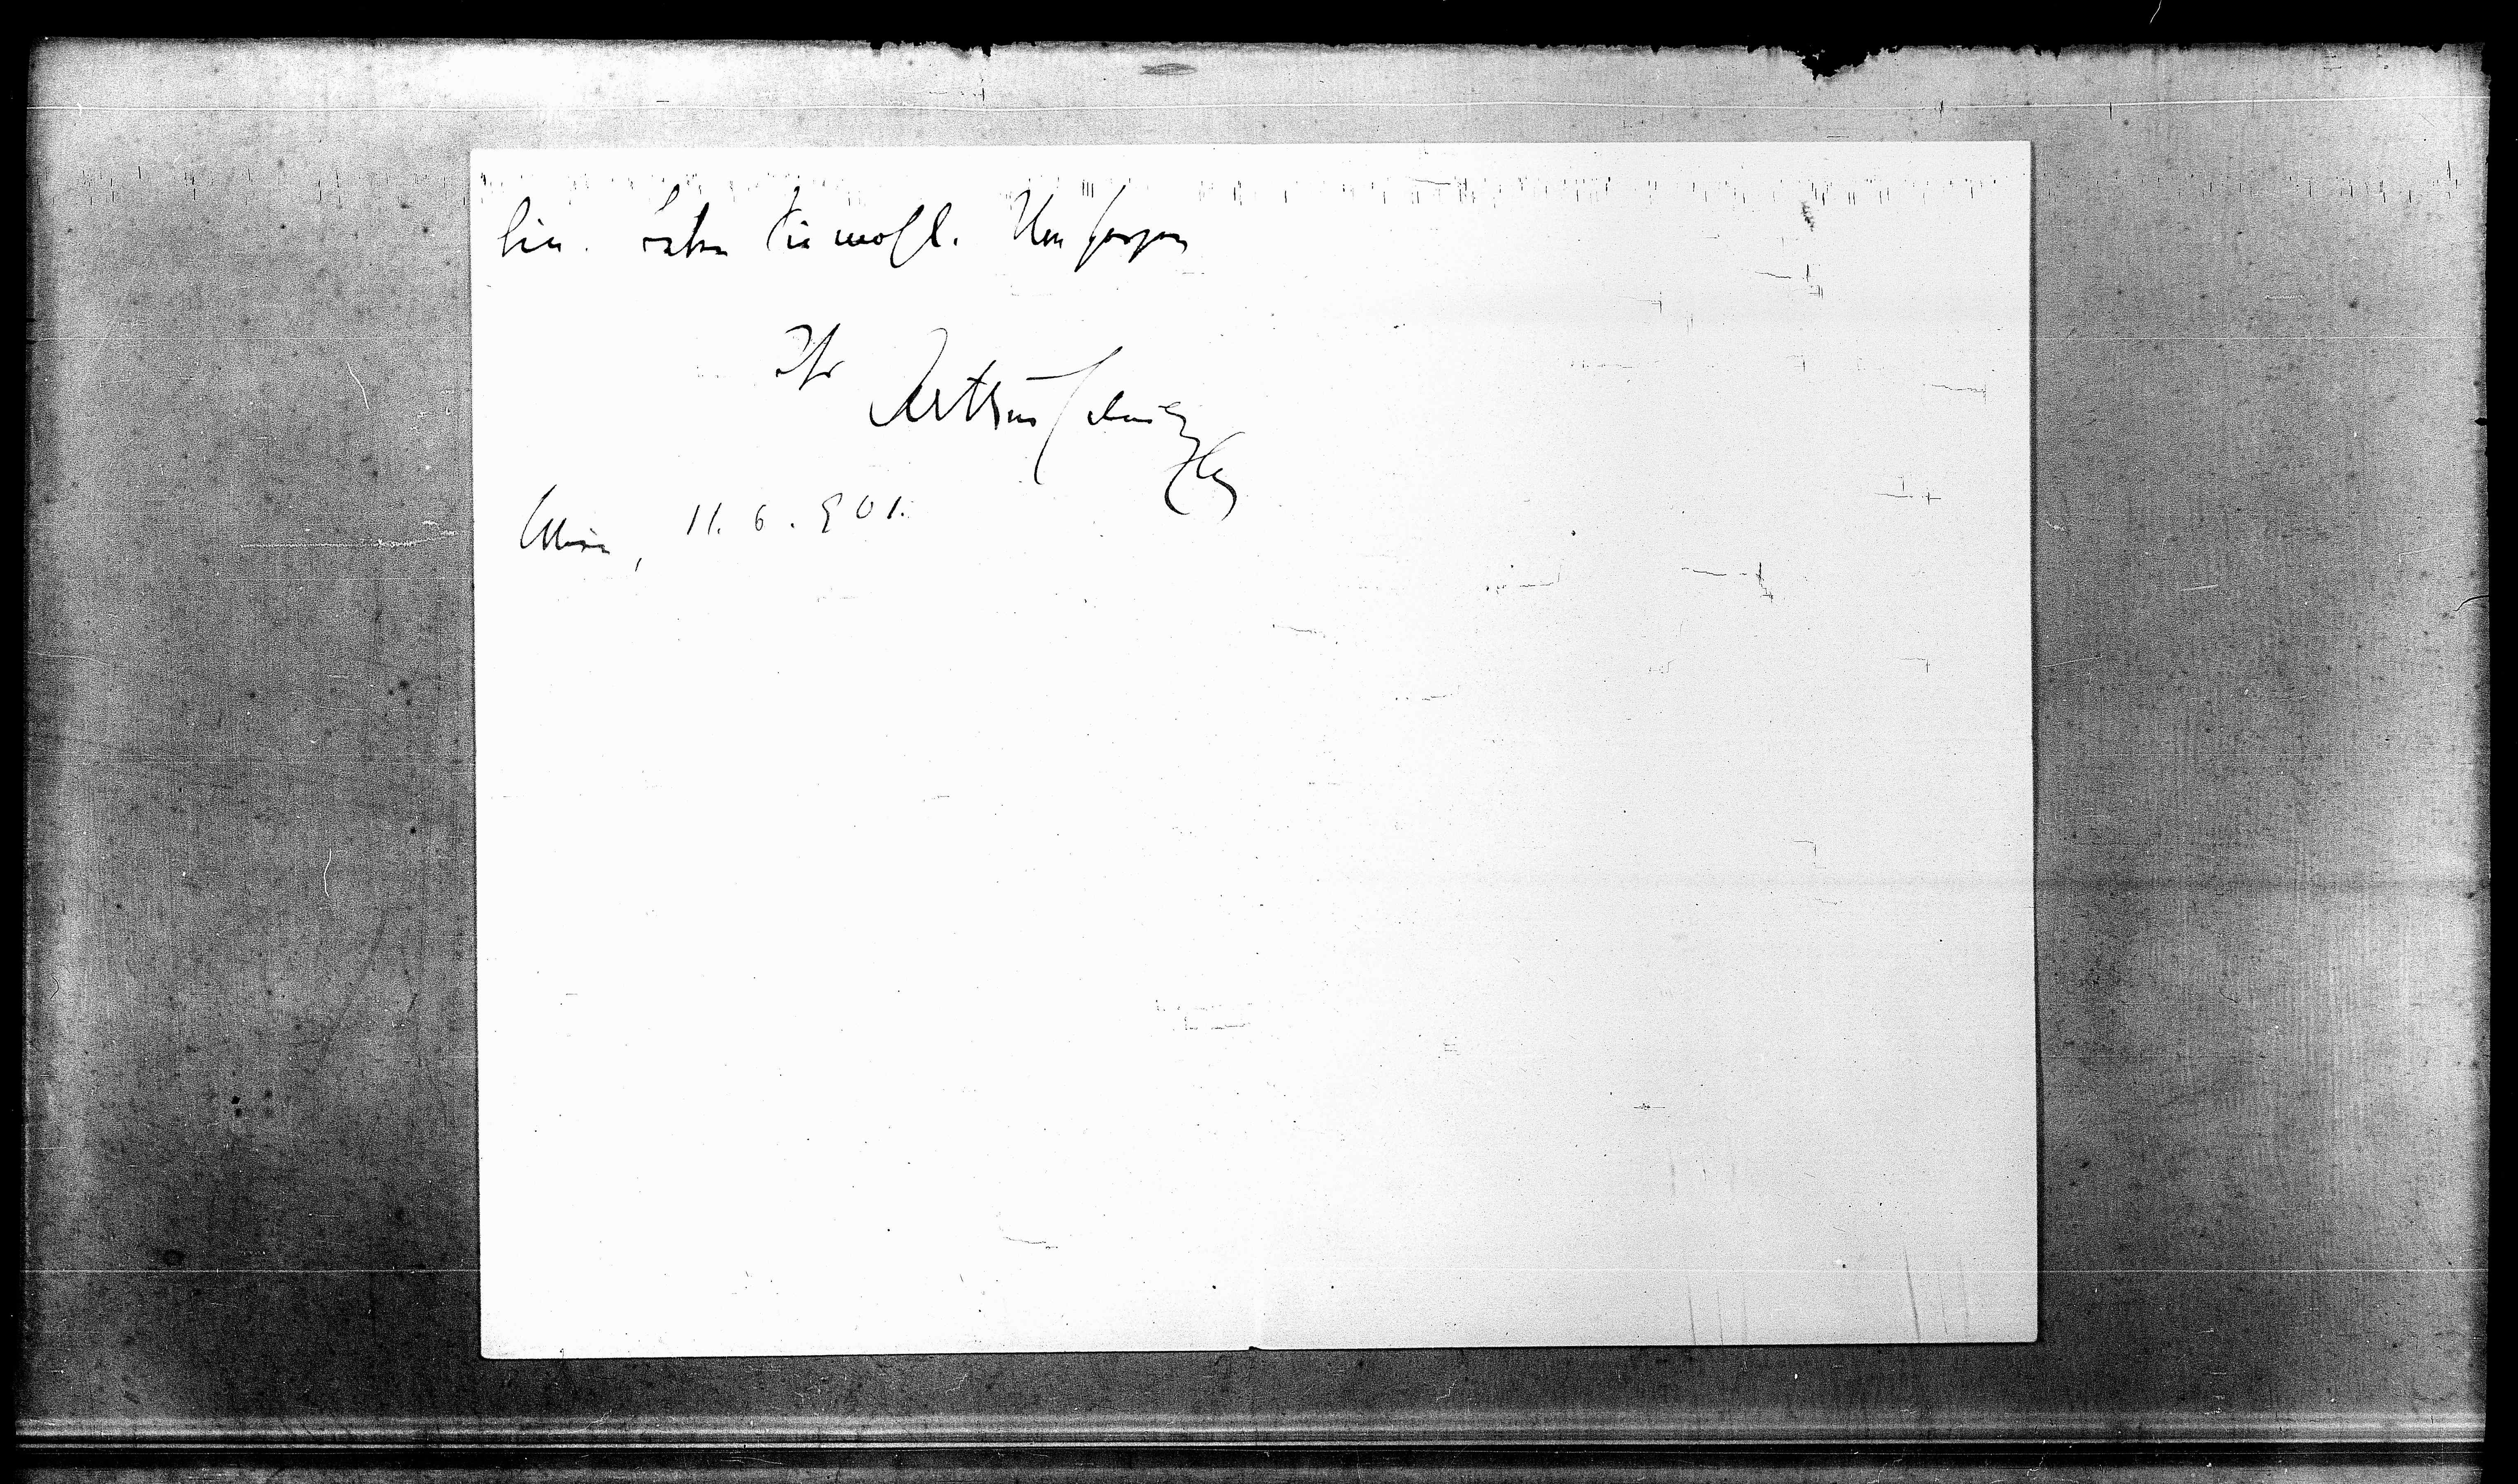 bin. Leben Sie wohl. Von Herzen
Ihr
Arthur Schnitzler
Wien, 11. 6. 901.